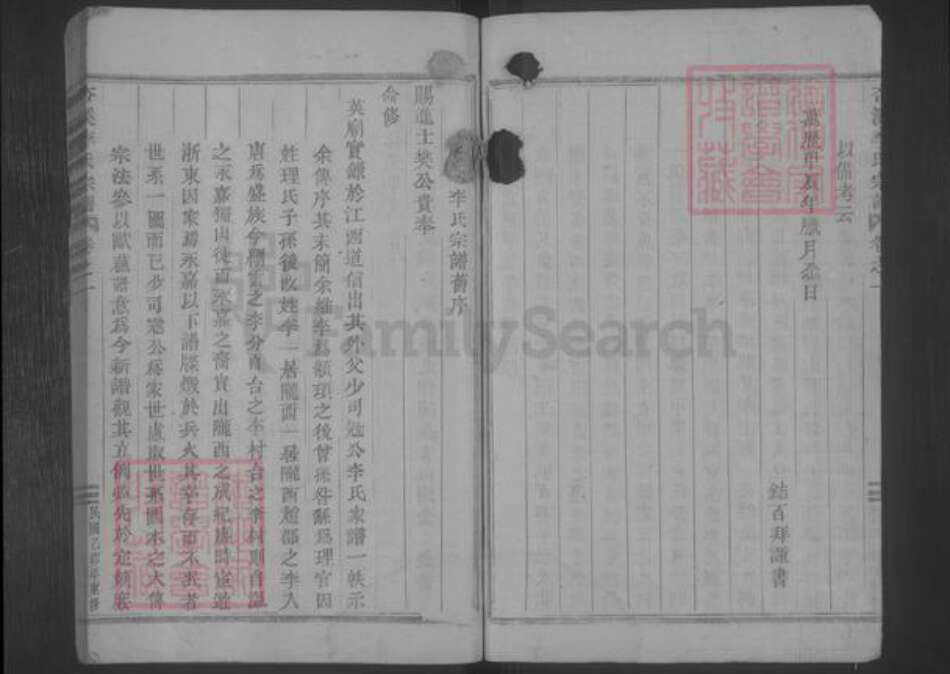 以備考云
萬歷甲辰年臘月念日
鈷百拜謹書
李氏宗譜舊序
賜進士樊公貴奉
命修
英廟實錄於江西道信出其外父少司寇公李氏家譜一帙示
余俾序其末簡余維李爲顓頊之後曾孫咎繇爲理官因
姓理氏子孫後改姓李一居隴西一居隴西趙郡之李入
唐爲盛族今之李分自台之李村台之李村則自溫
之永嘉徙而永嘉之裔實出隴西之成紀唐時宦遊
浙東因家永嘉以下譜牒燬於兵火其幸存而不泯者
世系一圖而已少司寇公爲家世慮取世系圖本之大傳
宗法參以歐蘇譜意爲今新譜觀其立例必先於定頰底
民國乙卯年重修
FamilySearch